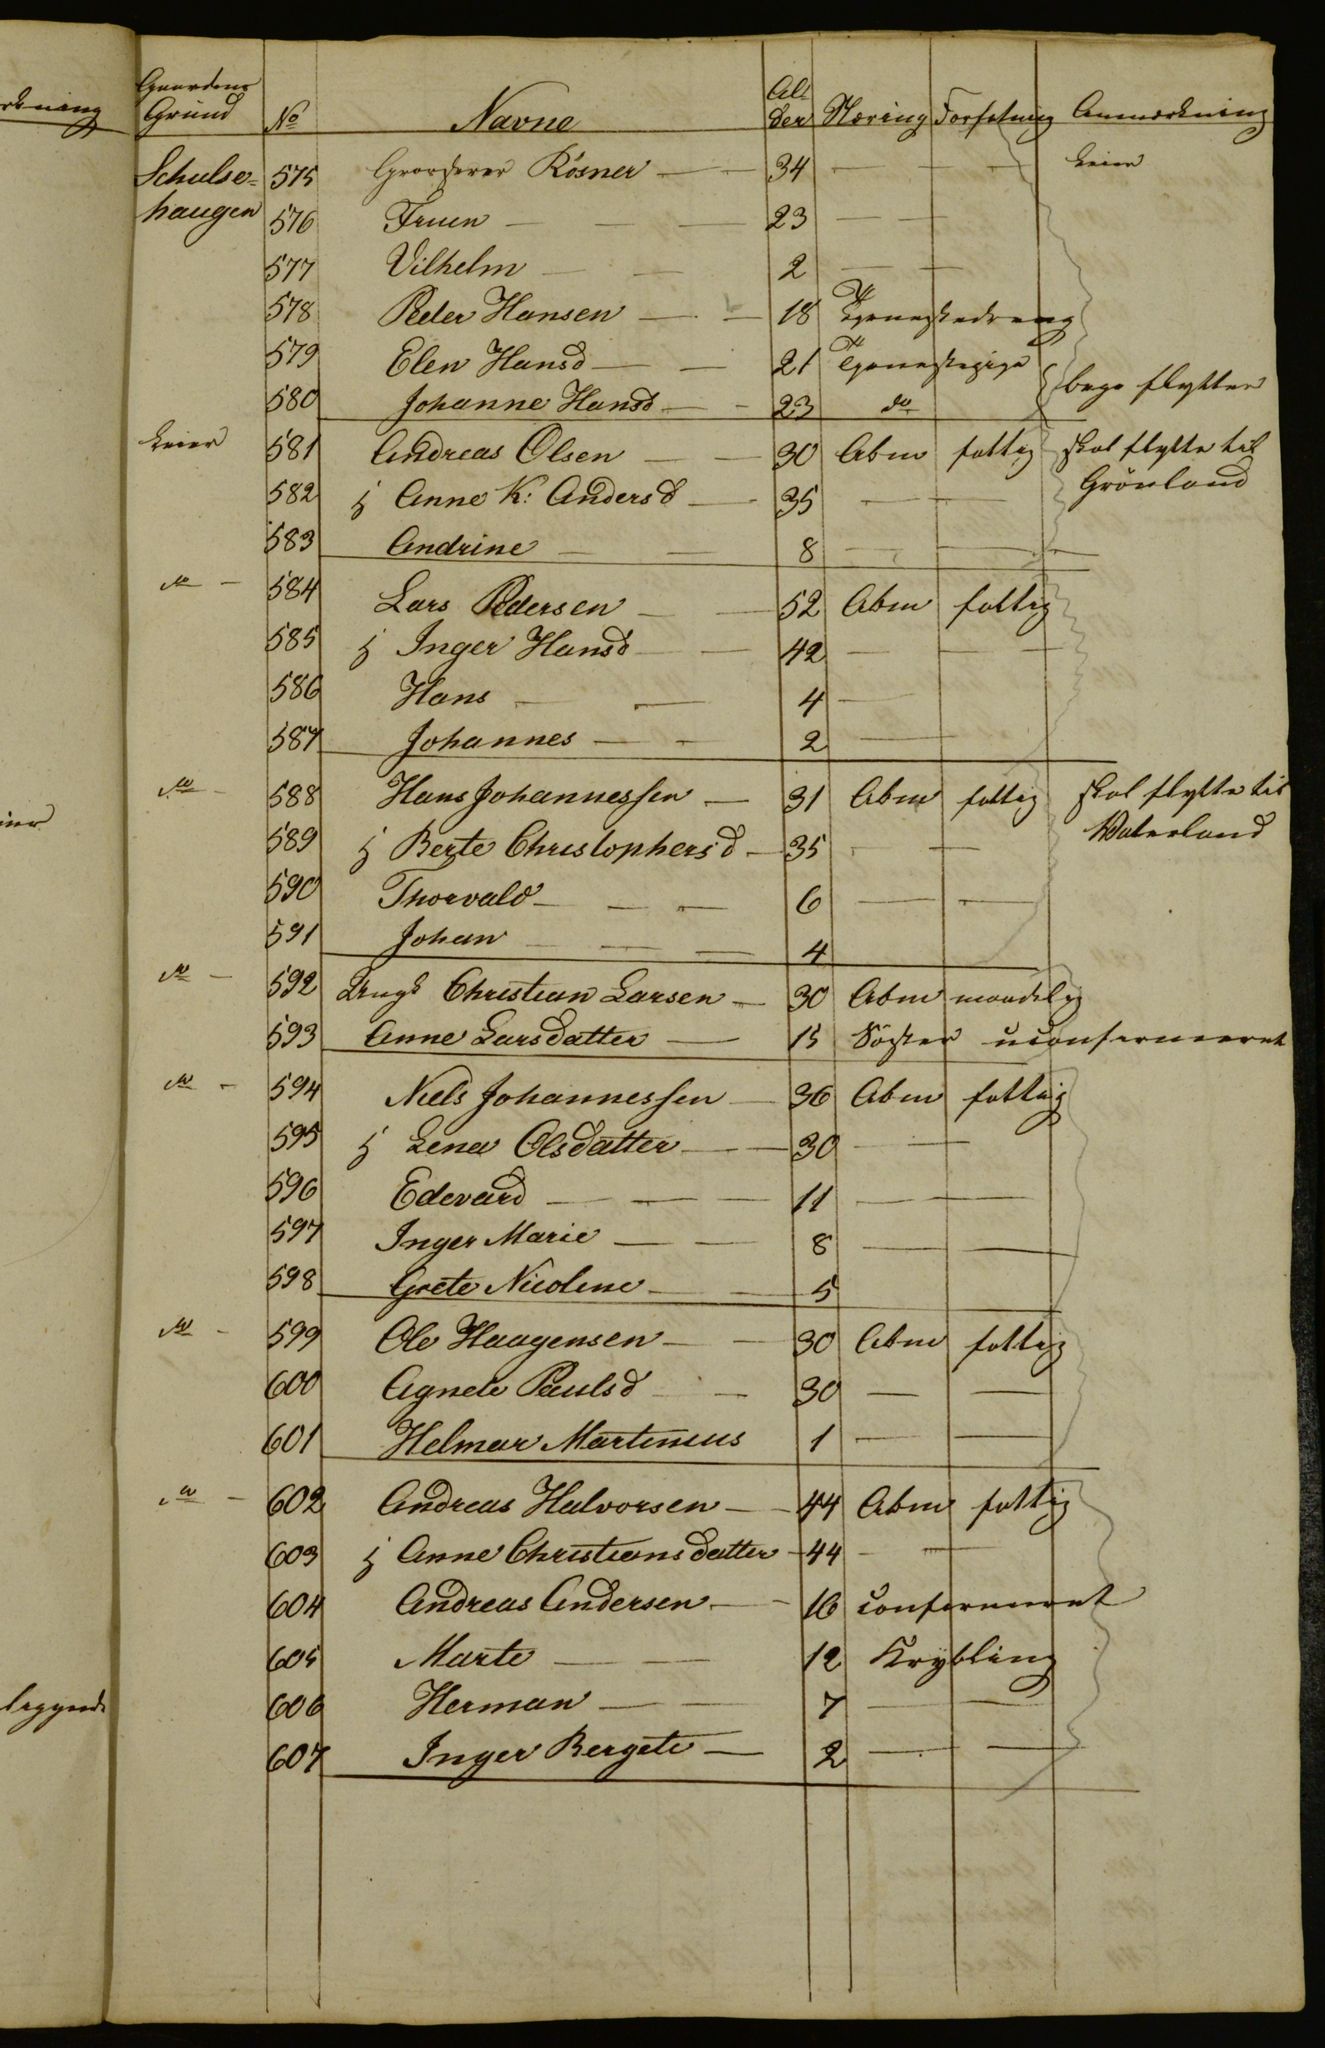 Gaardens Grund No Navne Alder Næring Forfatning Anmærkning
Schulse- 575 Grosserer Rösner 34 — — Leier
haugen 576 Fruen 23 — —
577 Vilhelm 2 — —
578 Peder Hansen 18 Tjenestedreng
579 Elen Hansd 21 Tjenestepige
580 Johanne Hansd 23 do } bege flytter
Leier 581 Andreas Olsen 30 Abm fattig skal flytte til
582 Anne K: Andersd 35 — — Grönland
583 Andrine 8 — —
do 584 Lars Pedersen 52 Abm fattig
585 Inger Hansd 42 — —
586 Hans 4 —
587 Johannes 2 —
do 588 Hans Johannessen 31 Abm fattig skal flytte til
589 Berte Christophersd 35 — Waterland
590 Thorvald 6 — —
591 Johan 4
do 592 Ungk Christian Larsen 30 Abm maadelig
593 Anne Larsdatter 15 Söster uconfirmeret
do 594 Niels Johannessen 36 Abm fattig
595 Lena Olsdatter 30 — —
596 Edevard 11 — —
597 Inger Marie 8 — —
598 Grete Nicoline 5
do 599 Ole Haagensen 30 Abm fattig
600 Agnete Paulsd 30 — —
601 Helmar Martinius 1 — —
do 602 Andreas Halvorsen 44 Abm fattig
603 Anne Christiansdatter 44 — —
604 Andreas Andersen 16 confirmeret
605 Marte 12 Krybling
606 Herman 7 — —
607 Inger Bergete 2 — —